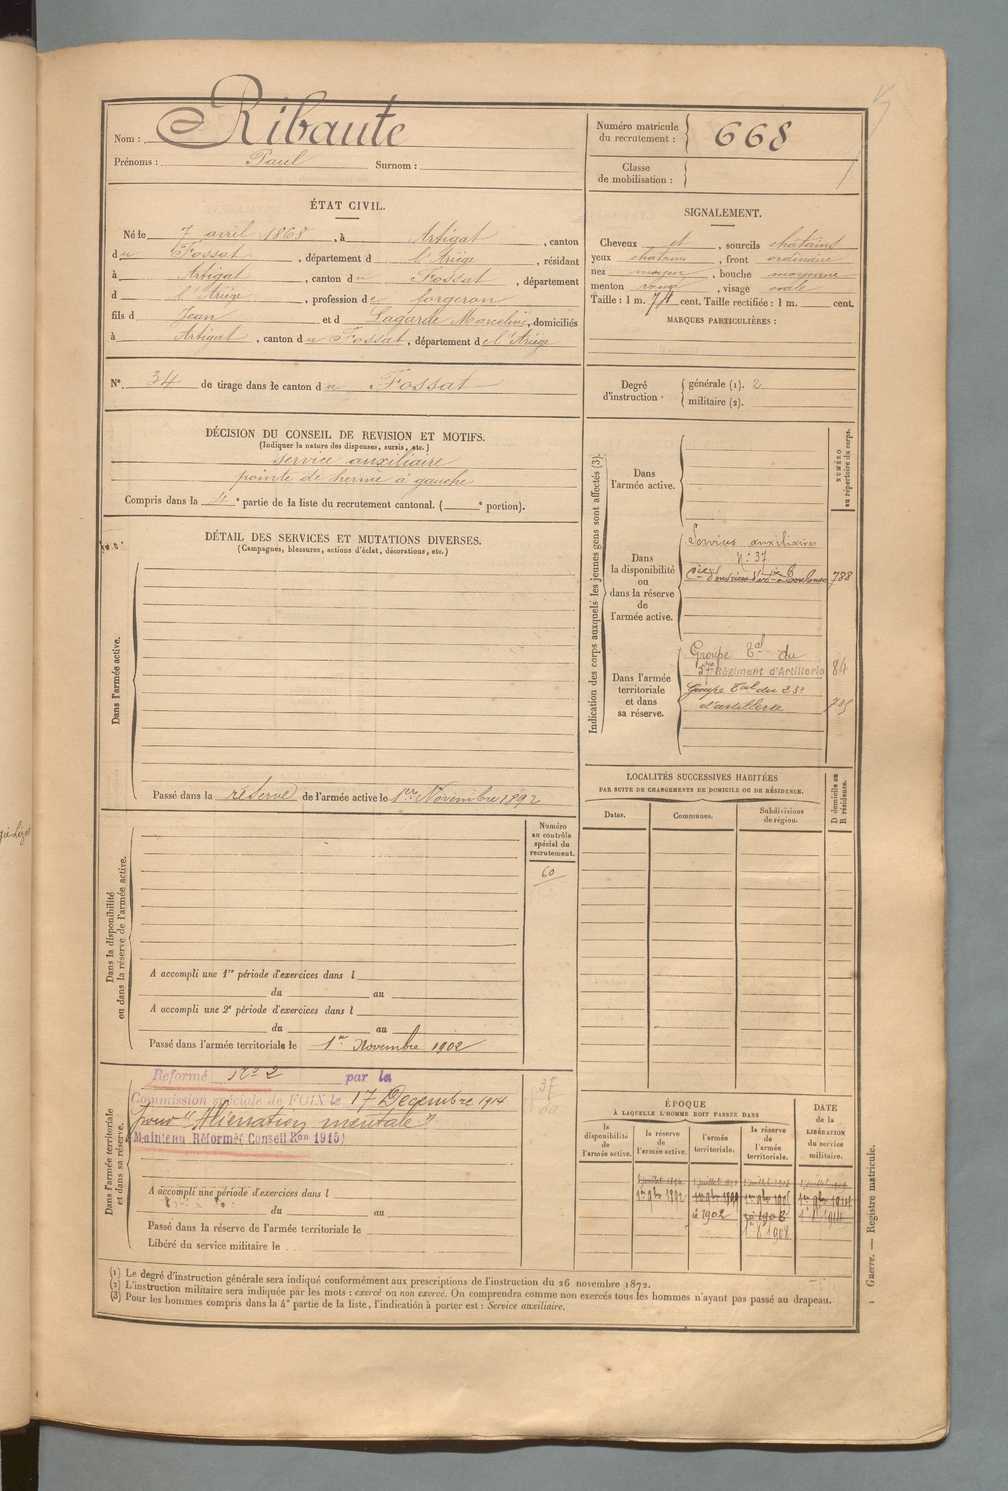 Nom : Ribaute
Prénoms : Paul Surnom :
Numéro matricule du recrutement : 668
Classe de mobilisation :
ÉTAT CIVIL.
Né le 7 avril 1868, à Artigat, canton
du Fossat, département d l'Ariège, résidant
à Artigat, canton du Fossat, département
d l'Ariège, profession de forgeron
fils d Jean et d Lagarde Marceline, domiciliés
à Artigat, canton du Fossat, département de l'Ariège
N° 34 de tirage dans le canton du Fossat
SIGNALEMENT.
Cheveux et, sourcils chatains
yeux chatains, front ordinaire
nez moyen, bouche moyenne
menton rond, visage ovale
Taille : 1 m. 71 cent. Taille rectifiée : 1 m. cent.
MARQUES PARTICULIÈRES :
Degré d'instruction.
générale (1). 2
militaire (2).
DÉCISION DU CONSEIL DE REVISION ET MOTIFS.
(Indiquer la nature des dispenses, sursis, etc.)
service auxiliaire
pointe de hernie à gauche
Compris dans la 4e partie de la liste du recrutement cantonal. ( e portion).
DÉTAIL DES SERVICES ET MUTATIONS DIVERSES.
(Campagnes, blessures, actions d'éclat, décorations, etc.)
Dans l'armée active.
Passé dans la réserve de l'armée active le 1er Novembre 1892
Indication des corps auxquels les jeunes gens sont affectés (3).
NUMÉRO au répertoire du corps.
Dans l'armée active.
Dans la disponibilité ou dans la réserve de l'armée active.
Services auxiliaires
N: 37
788
Dans l'armée territoriale et dans sa réserve.
Groupe tal du
Régiment d'Artillerie 84
Groupe tal du 23e
d'artillerie
LOCALITÉS SUCCESSIVES HABITÉES
PAR SUITE DE CHANGEMENTS DE DOMICILE OU DE RÉSIDENCE.
D domicile ou R résidence.
Dates. Communes. Subdivisions de région.
Dans la disponibilité ou dans la réserve de l'armée active.
Numéro au contrôle spécial du recrutement.
60
A accompli une 1re période d'exercices dans l
du au
A accompli une 2e période d'exercices dans l
du au
Passé dans l'armée territoriale le 1er Novembre 1902
Dans l'armée territoriale et dans sa réserve.
Réformé No 2 par la
Commission spéciale de FOIX le 17 Decembre 1914
pour "Aliénation mentale"
Maintenu Réformé (Conseil Ron 1915)
37
60
A accompli une période d'exercices dans l
du au
Passé dans la réserve de l'armée territoriale le
Libéré du service militaire le
ÉPOQUE
À LAQUELLE L'HOMME DOIT PASSER DANS
la disponibilité de l'armée active.
la réserve de l'armée active.
l'armée territoriale.
la réserve de l'armée territoriale.
DATE de la LIBÉRATION du service militaire.
1er 9bre 1892
1902
1908
1914
(1) Le degré d'instruction générale sera indiqué conformément aux prescriptions de l'instruction du 26 novembre 1872.
(2) L'instruction militaire sera indiquée par les mots : exercé ou non exercé. On comprendra comme non exercés tous les hommes n'ayant pas passé au drapeau.
(3) Pour les hommes compris dans la 4e partie de la liste, l'indication à porter est : Service auxiliaire.
Guerre. — Registre matricule.